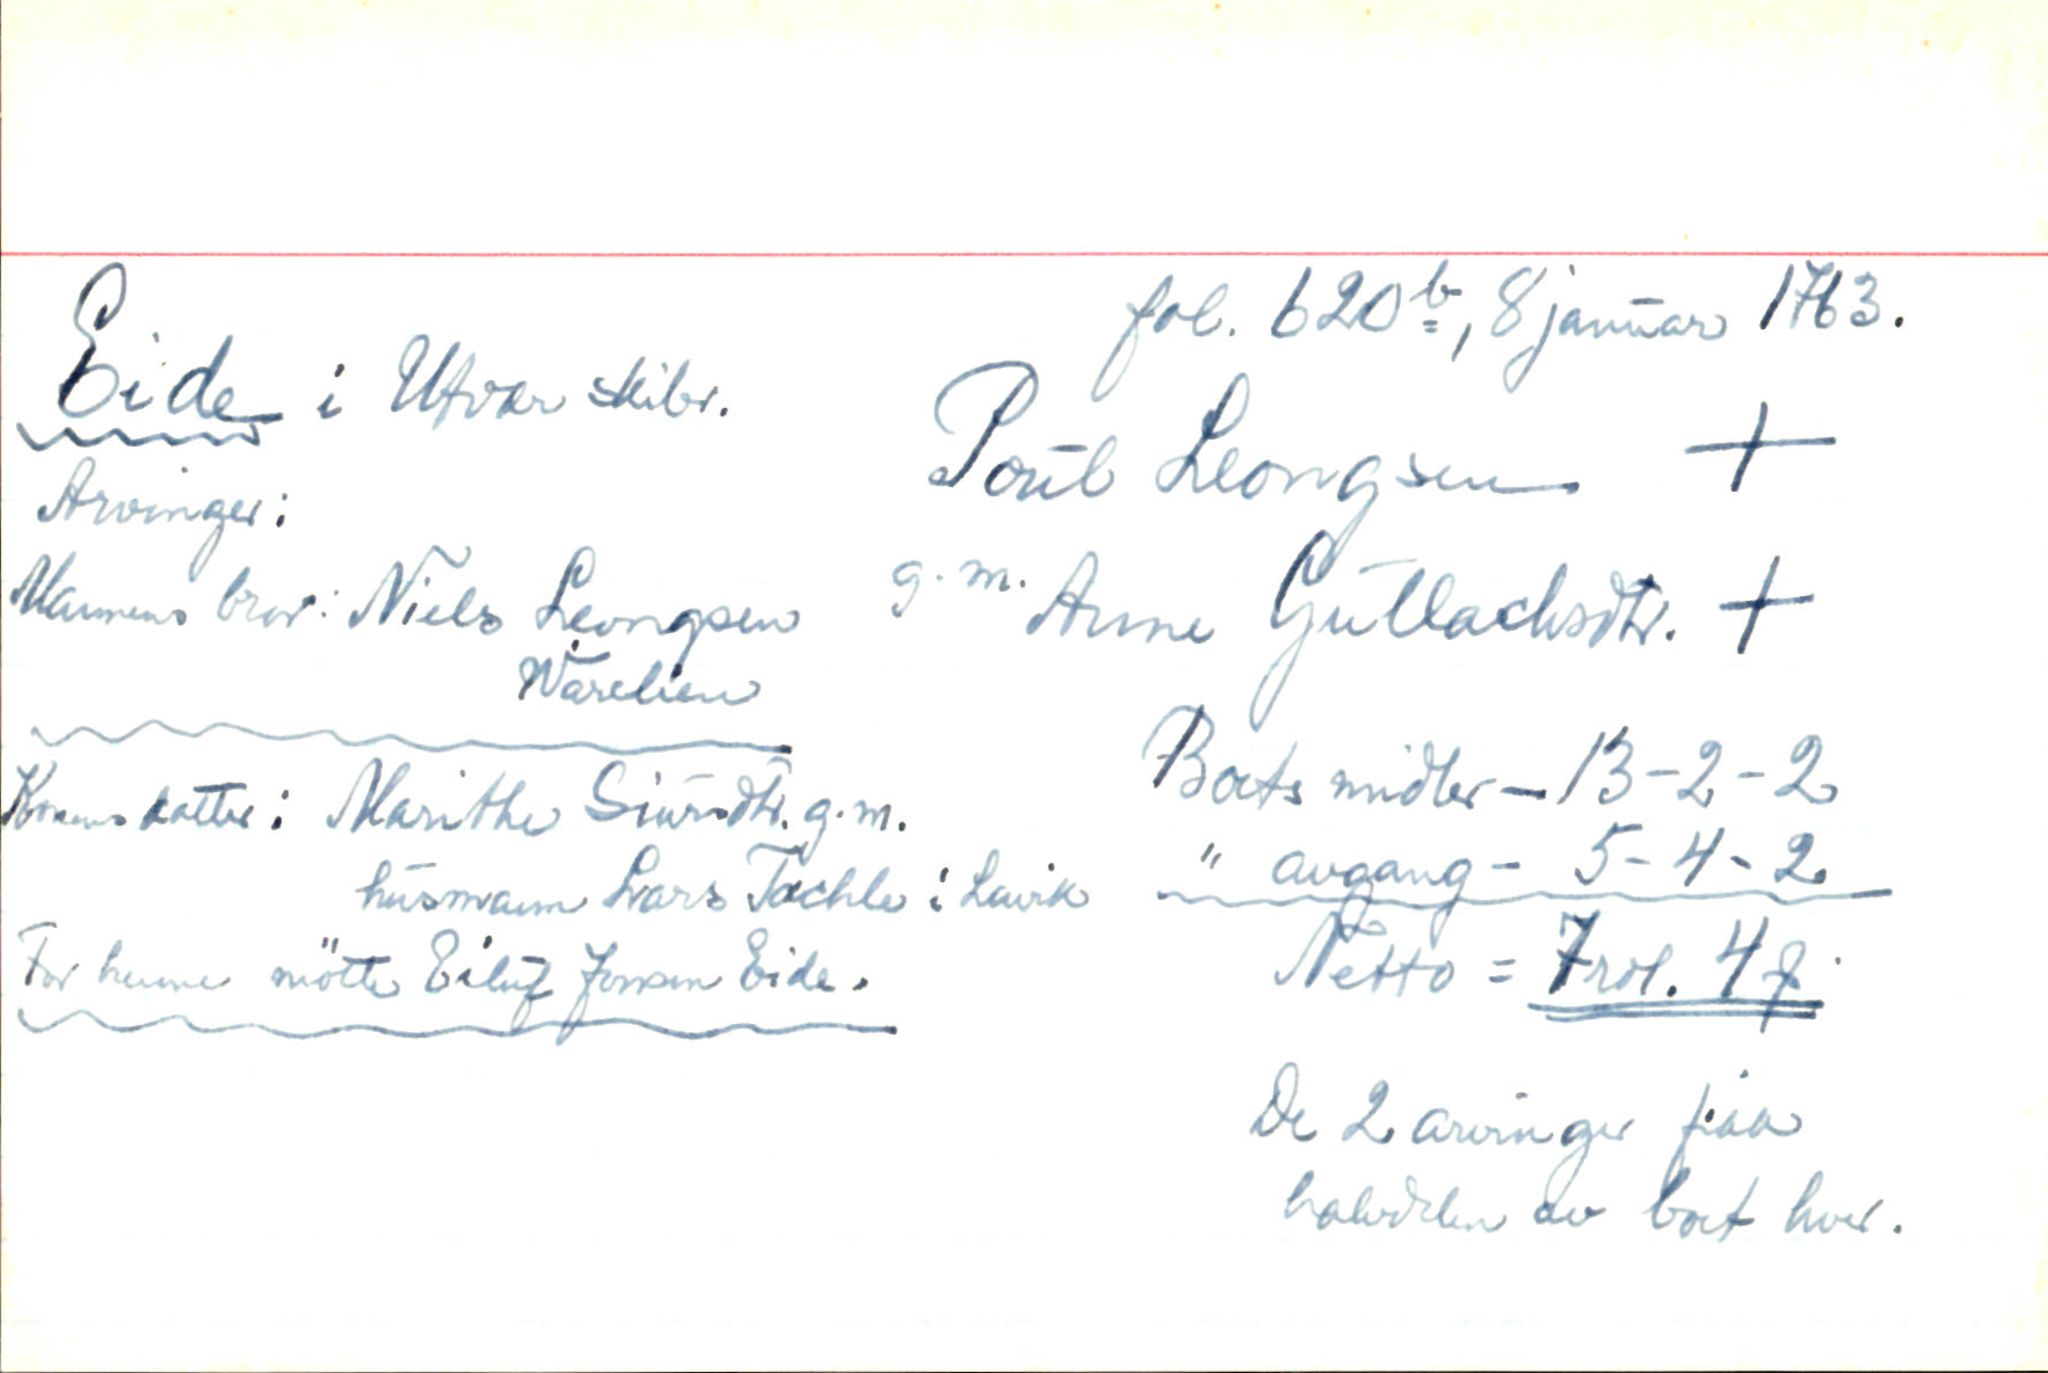 fol. 620b, 8 januar 1763.
Eide i Utvær skibr.
Poul Leongsen +
Arvinger:
g.m. Anne Gullachsdtr. +
Mannens bror: Niels Leongsen
Wårelien
Boets midler - 13-2-2
Konens datter: Marithe Siursdtr. g.m.
husmann Ivars Tæchle i Lavik
" avgang - 5-4-2
For henne mötte Eiluf Jonsen Eide.
Netto = 7 rdl. 4 β
De 2 arvinger fikk
halvdelen av boet hver.